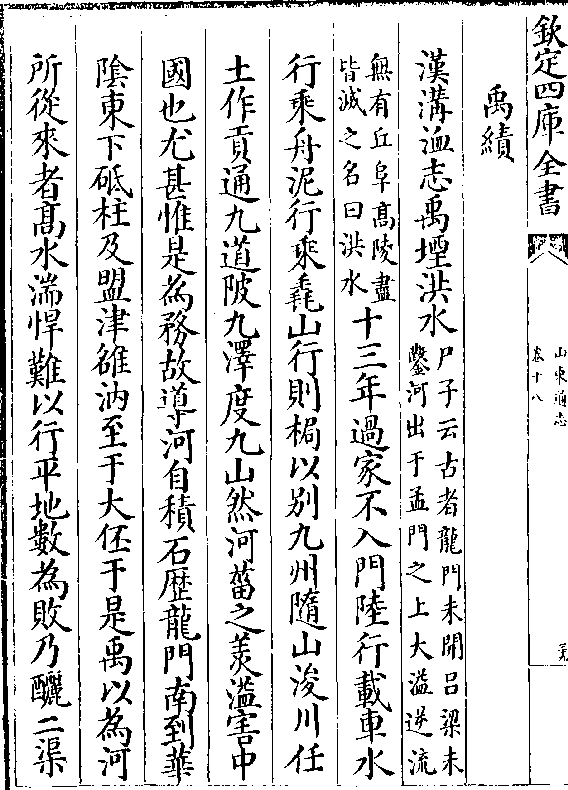 欽定四庫全書
山東通志
卷十八
禹績
漢溝洫志禹堙洪水尸子云古者龍門未開呂梁未
鑿河出于孟門之上大溢逆流
無有丘阜高陵盡
皆滅之名曰洪水十三年過家不入門陸行載車水
行乘舟泥行乘毳山行則梮以别九州隨山浚川任
土作貢通九道陂九澤度九山然河菑之羨溢害中
國也尤甚惟是為務故導河自積石歴龍門南到華
隂東下砥柱及盟津雒汭至于大伾于是禹以為河
所從來者髙水湍悍難以行平地數為敗乃釃二渠